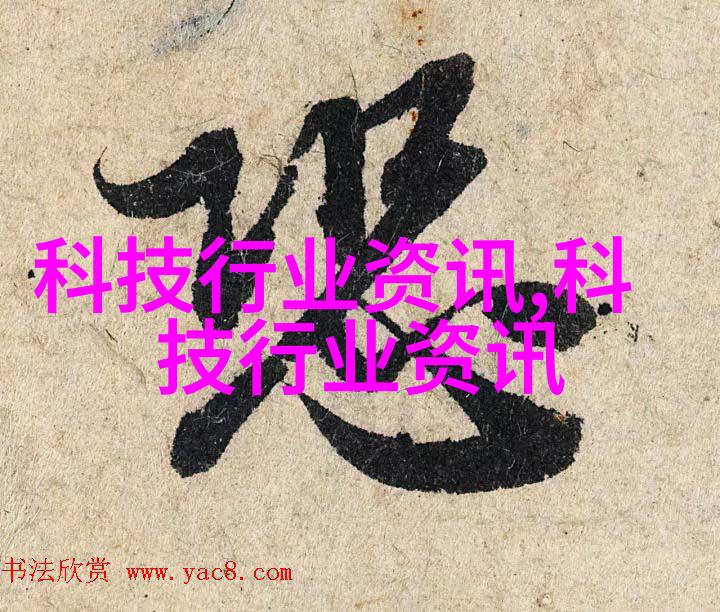 科技行业资讯,科
技行业资讯
书法欣赏 www.yac8.com